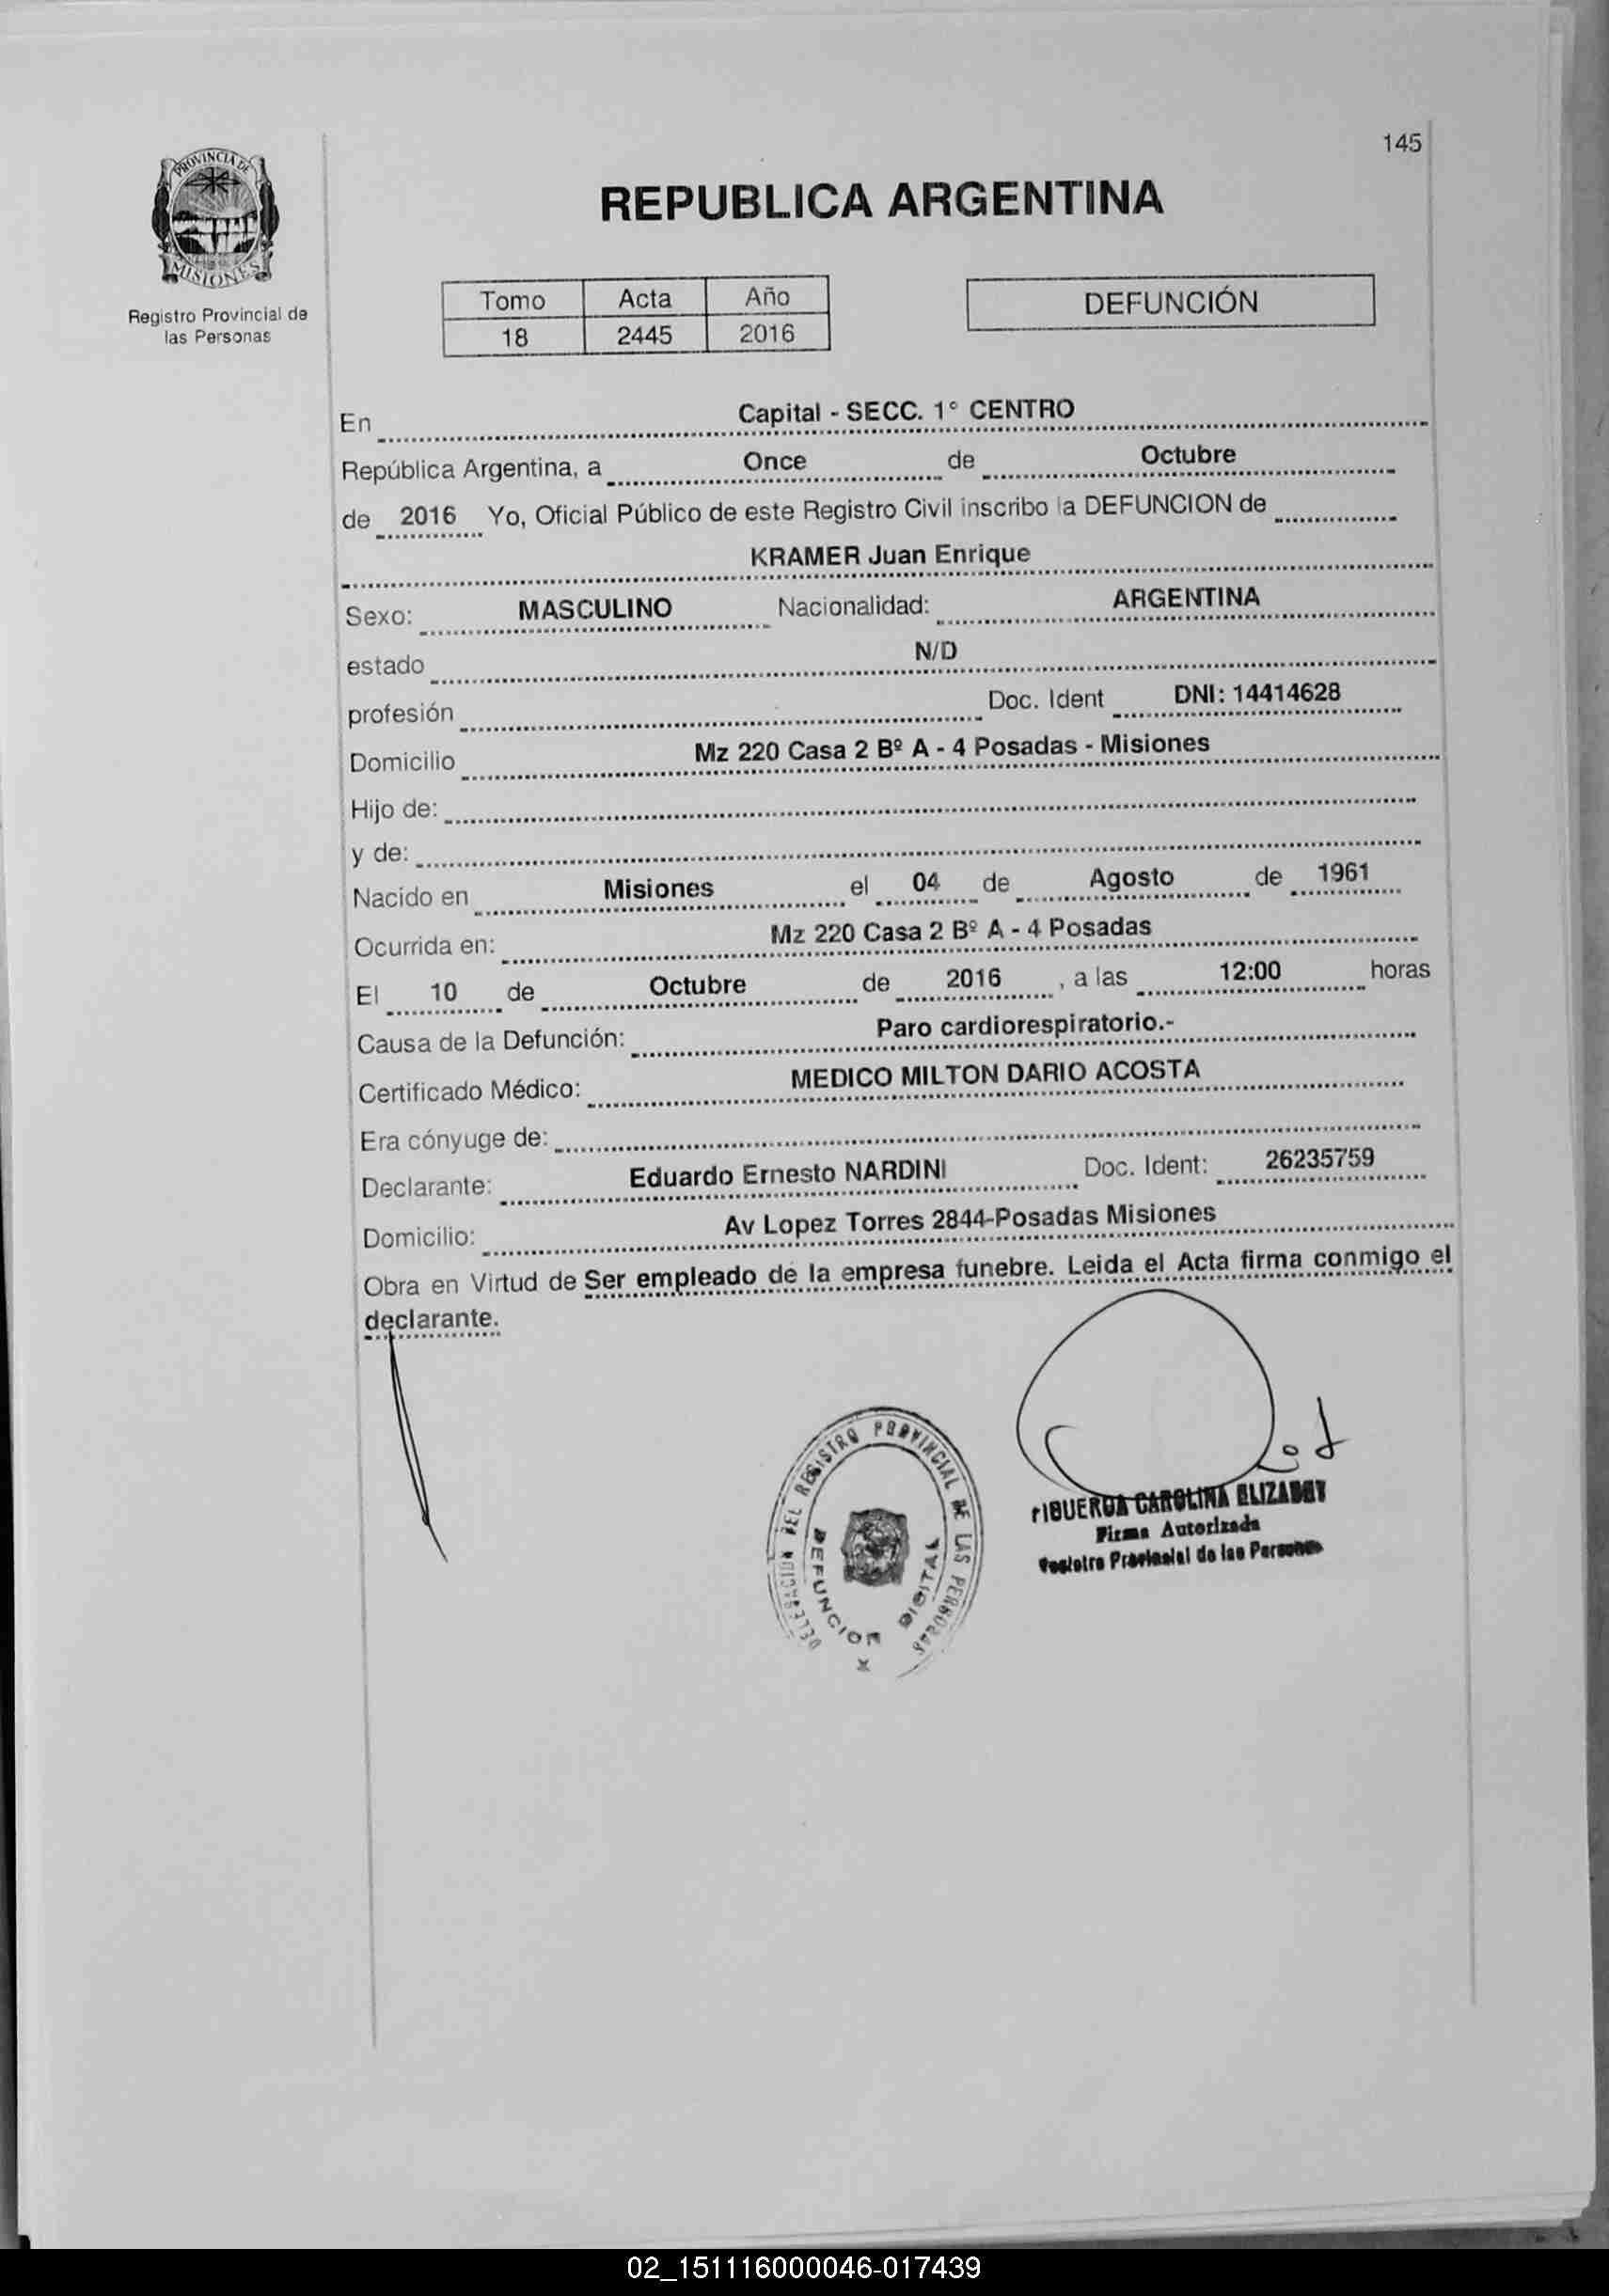 145
PROVINCIA DE
MISIONES
Registro Provincial de
las Personas
REPUBLICA ARGENTINA
Tomo Acta Año
18 2445 2016
DEFUNCIÓN
En Capital - SECC. 1° CENTRO
República Argentina, a Once de Octubre
de 2016 Yo, Oficial Público de este Registro Civil inscribo la DEFUNCION de
KRAMER Juan Enrique
Sexo: MASCULINO Nacionalidad: ARGENTINA
estado N/D
profesión Doc. Ident DNI: 14414628
Domicilio Mz 220 Casa 2 Bº A - 4 Posadas - Misiones
Hijo de:
y de:
Nacido en Misiones el 04 de Agosto de 1961
Ocurrida en: Mz 220 Casa 2 Bº A - 4 Posadas
El 10 de Octubre de 2016 , a las 12:00 horas
Causa de la Defunción: Paro cardiorespiratorio.-
Certificado Médico: MEDICO MILTON DARIO ACOSTA
Era cónyuge de:
Declarante: Eduardo Ernesto NARDINI Doc. Ident: 26235759
Domicilio: Av Lopez Torres 2844-Posadas Misiones
Obra en Virtud de Ser empleado de la empresa funebre. Leida el Acta firma conmigo el
declarante.
DELEGACION DEL REGISTRO PROVINCIAL DE LAS PERSONAS
DEFUNCION DIGITAL
CAROLINA
Firma Autorizada
Registro Provincial de las Personas
02_151116000046-017439